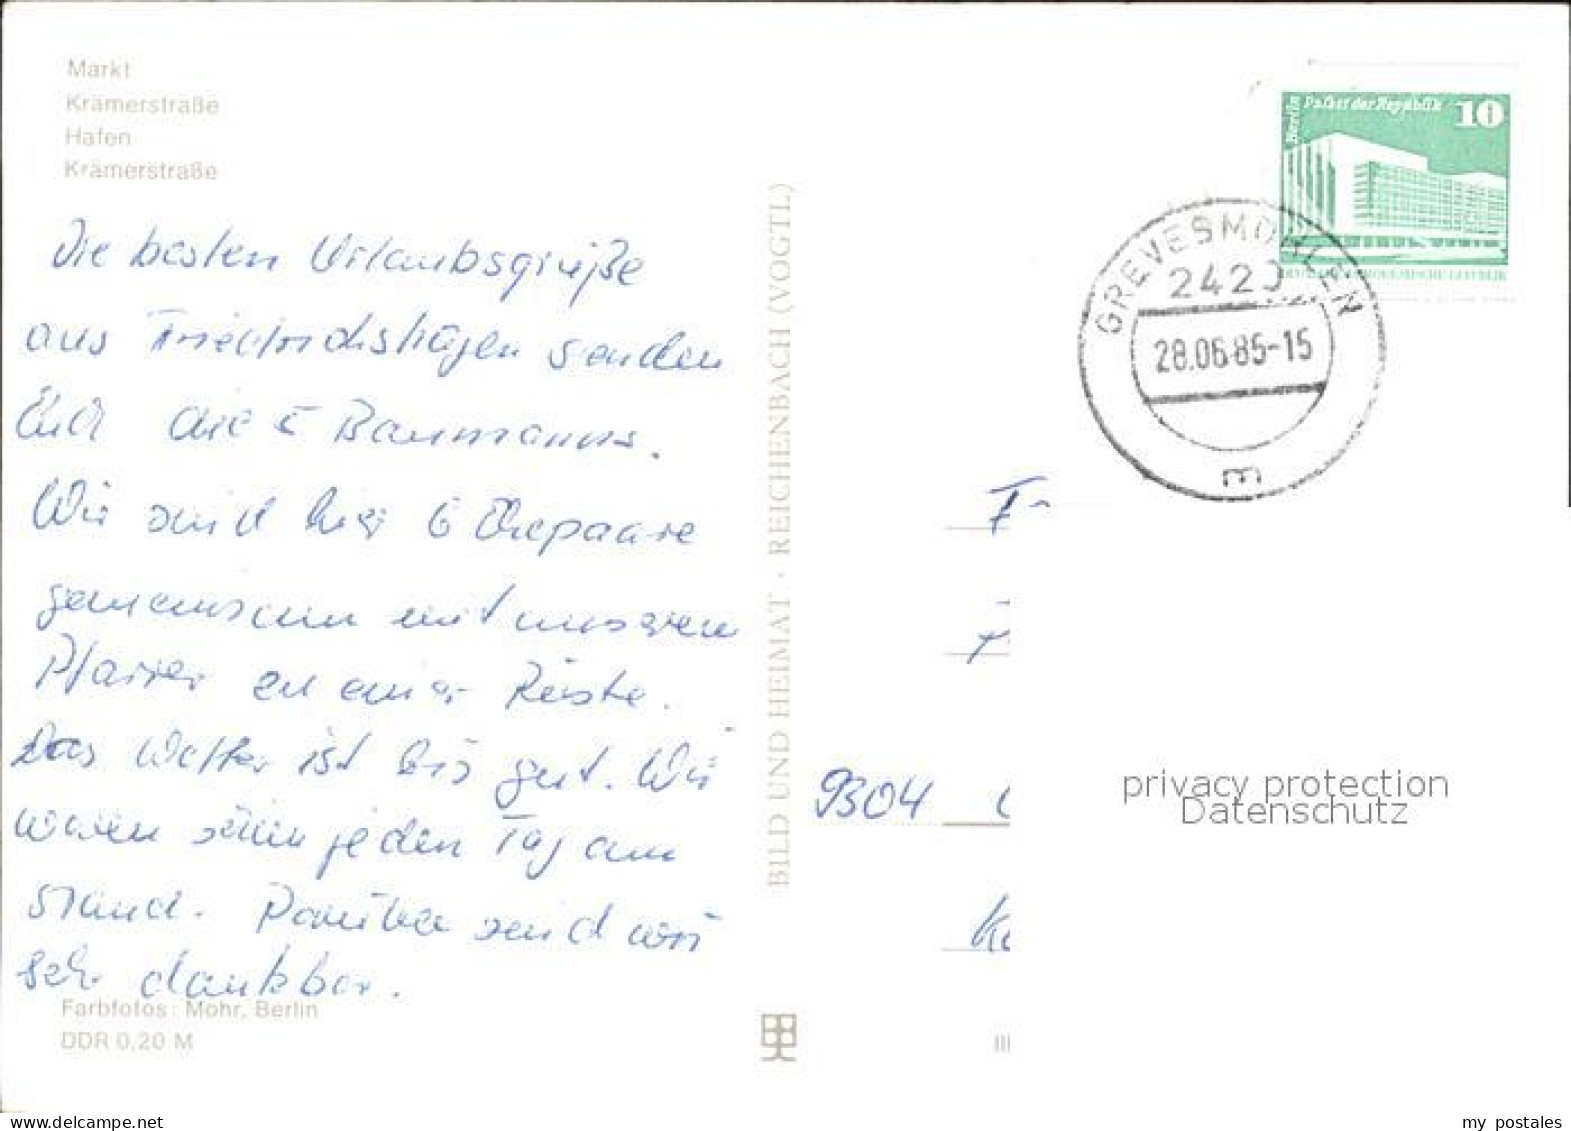 Markt
Krämerstraße
Hafen
Krämerstraße
Die besten Urlaubsgrüße
aus Friedrichshagen senden
Euch die 5 Baumanns.
Wir sind hier 6 Ehepaare
gemeinsam mit unserem
Pfarrer zu einer Rüste.
Das Wetter ist bis gut. Wir
waren jeden Tag am
Strand. Darüber sind wir
sehr dankbar.
Farbfotos: Mohr, Berlin
DDR 0,20 M
BILD UND HEIMAT · REICHENBACH (VOGTL)
Berlin Palast der Republik 10
GREVESMÜHLEN
2420
28.06.85-15
m
9304
privacy protection
Datenschutz
www.delcampe.net
my postales